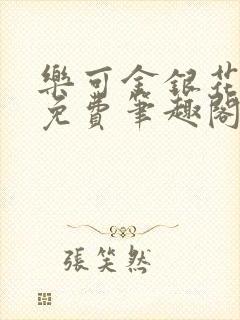 樂可金銀花
免費筆趣閣
張笑然